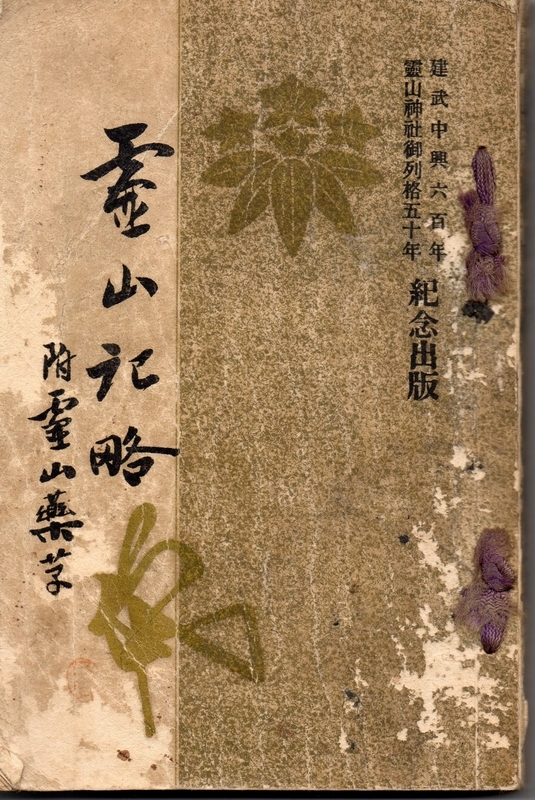 建武中興六百年
靈山神社御列格五十年
紀念出版
靈山記略
附靈山藥草